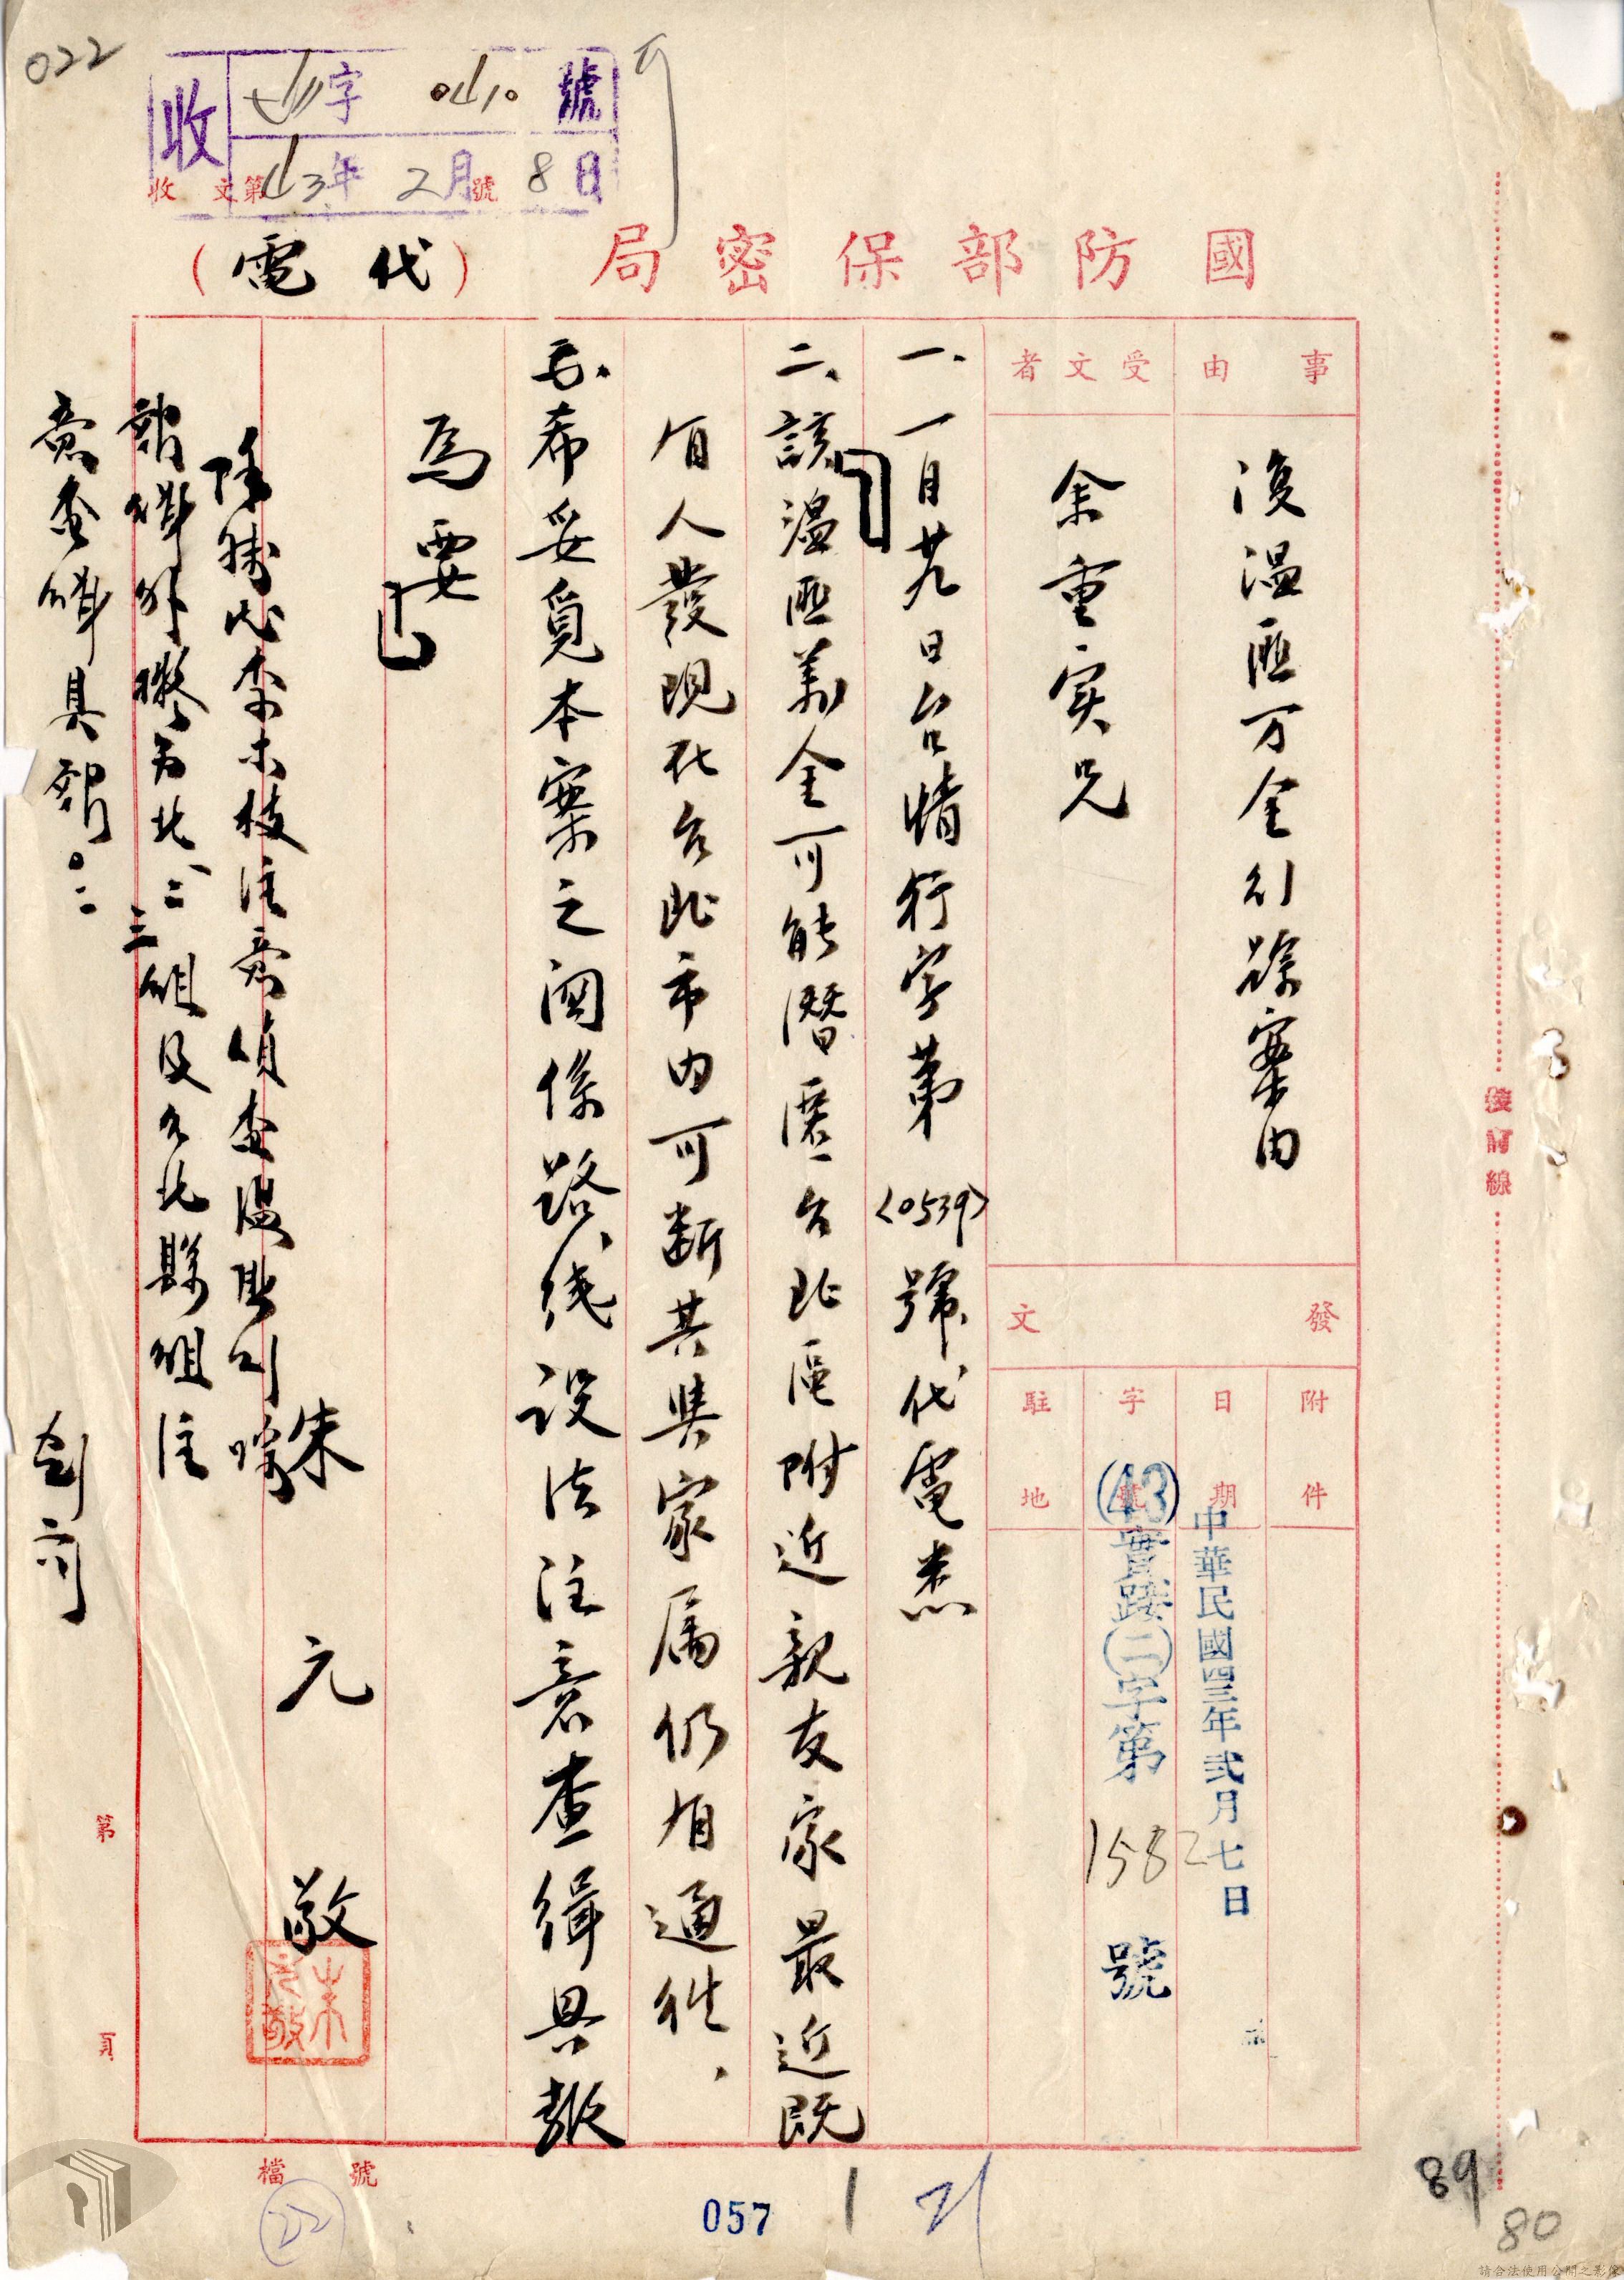 022
收 字 0410 號
43年 2月 8日
收文第 號
國防部保密局（代電）
事由
復溫匪万金引踪案由
受文者
余重實兄
發文
附件
日期
中華民國四三年弍月七日
字號
(43)實踐(二)字第1582號
駐地
一、一月廿九日台情行字第<0539>號代電悉
二、該溫匪萬金可能潛匿台北區附近親友家最近既
有人發現在台北市內可断其與家属仍有通往、
三、希妥覓本案之関係路线设法注意查缉具報
為要
朱元敬
朱元敬
除轉忠李木枝注意偵查溫匪
報 外擬 北二三組及台北縣組注
意查緝具報。
裝訂線
第 頁
檔號
22
057
1
21
89
80
請合法使用公開之影像